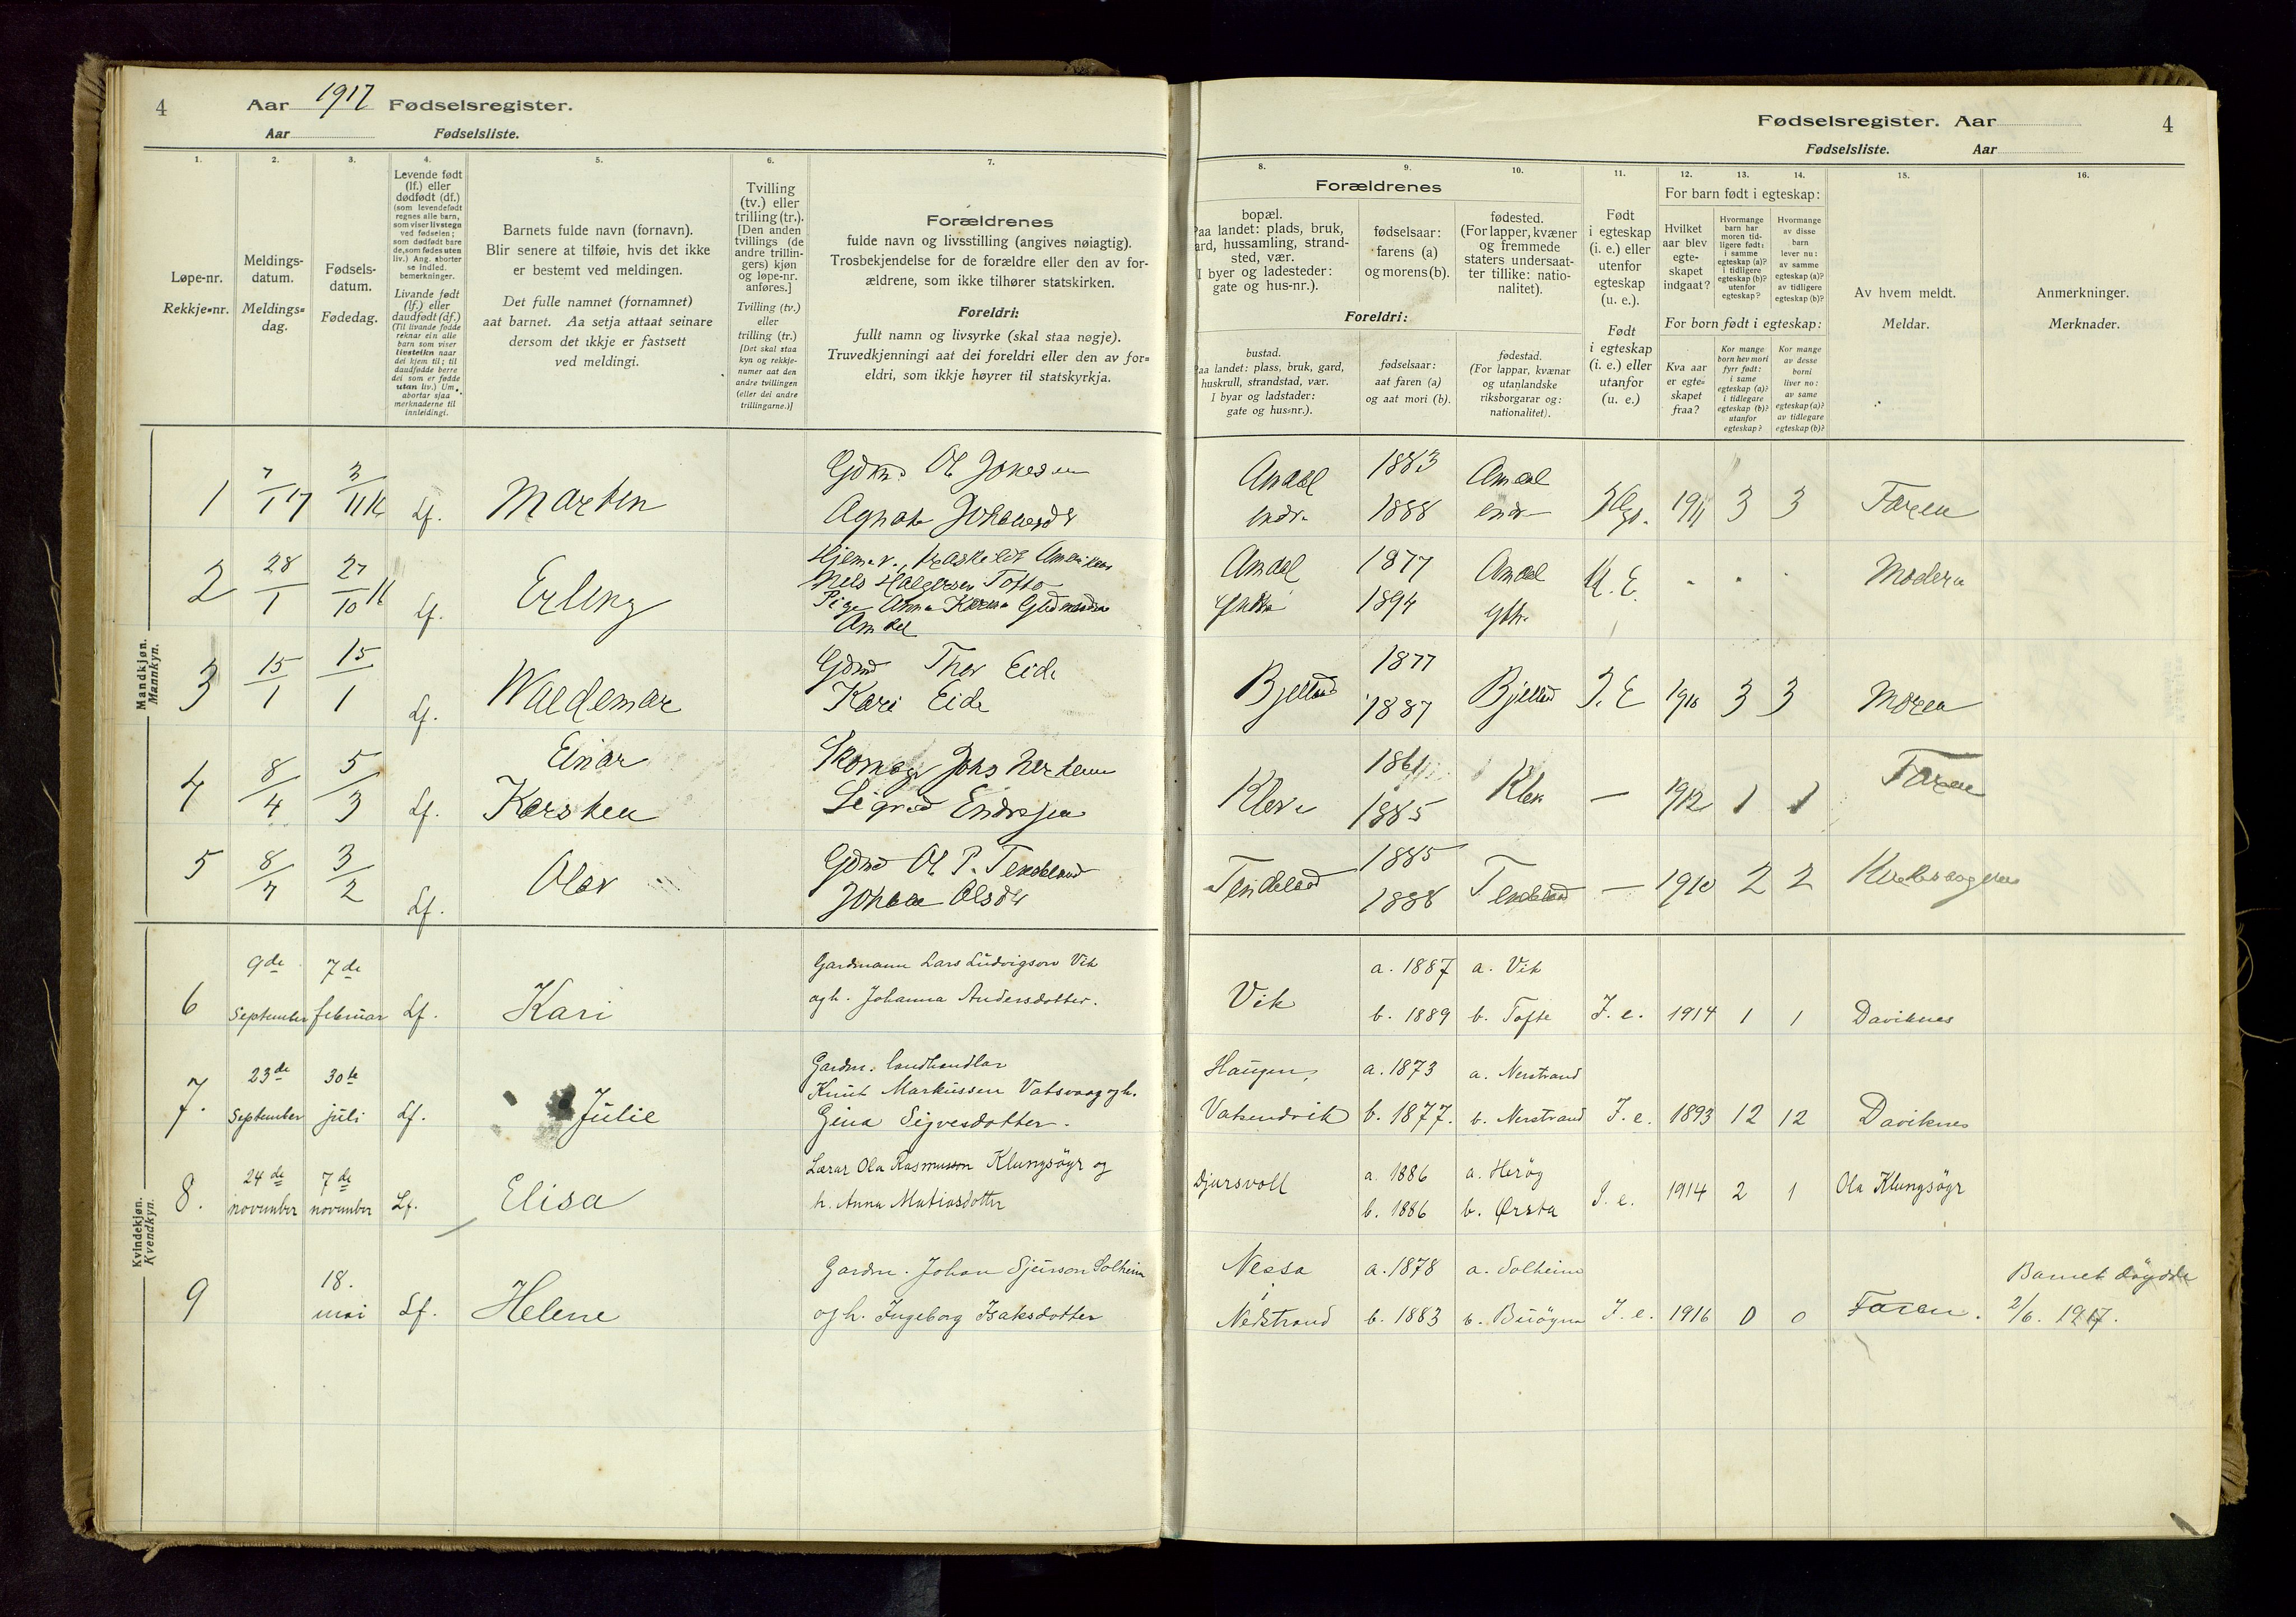 4 Aar 1917 Fødselsregister.
Aar Fødselsliste.
1.
Løpe-nr.
Rekkje=nr.
2.
Meldings-
datum.
Meldings=
dag.
3.
Fødsels-
datum.
Fødedag.
4.
Levende født
(lf.) eller
dødfødt (df.)
(som levendefødt
regnes alle barn,
som viser livstegn
ved fødselen;
som dødfødt bare
de, som fødes uten
liv.) Ang. aborter
se indled.
bemerkninger.
Livande født
(lf.) eller
daudfødt (df.)
(Til livande fødde
reknar ein alle
barn som viser
livsteikn naar
dei kjem til; til
daudfødde berre
dei som er fødde
utan liv.) Um
abortar sjaa
merknaderne til
innleidingi.
5.
Barnets fulde navn (fornavn).
Blir senere at tilføie, hvis det ikke
er bestemt ved meldingen.
Det fulle namnet (fornamnet)
aat barnet. Aa setja attaat seinare
dersom det ikkje er fastsett
ved meldingi.
6.
Tvilling
(tv.) eller
trilling (tr.).
[Den anden
tvillings (de
andre trillin-
gers) kjøn
og løpe-nr.
anføres.]
Tvilling (tv.)
eller
trilling (tr.)
[Det skal staa
kyn og rekkje-
numer aat den
andre tvillingen
(eller dei andre
trillingarne.)]
7.
Forældrenes
fulde navn og livsstilling (angives nøiagtig).
Trosbekjendelse for de forældre eller den av for-
ældrene, som ikke tilhører statskirken.
Foreldri:
fullt namn og livsyrke (skal staa nøgje).
Truvedkjenningi aat dei foreldri eller den av for=
eldri, som ikkje høyrer til statskyrkja.
Mandkjøn.
Mannkyn.
1 7/1 17 3/11 16 Lf. Marten
2 28/1 27/10 16 Lf. Erling
Anna Karina
3 15/1 15/1 Lf. Waldemar
Gdmd Thor Eide
Kari Eide
4 8/4 5/3 Lf. Einar
Karsten
Sigrid Endresen
5 8/7 3/2 Lf. Olav
Gdmd Ol P. Tendeland
Johanne Olsdtr
Kvindekjøn.
Kvendkyn.
6 9de september 7de februar Lf. Kari
Gardmann Lars Ludvigson Vik
og h. Johanna Andersdotter.
7. 23de september 30te juli Lf. Julie
Gardm. landhandlar
Knut Markussen Vatsvaag og h.
Gina Sigvesdotter.
8. 24de november 7de november Lf. Elisa
Lærar Ola Rasmusson Klungsöyr og
h. Anna Matiasdotter
9 18. mai Lf. Helene
Gardm. Johan Sjurson Solheim
og h. Ingeborg Isaksdotter
Fødselsregister. Aar 4
Fødselsliste. Aar
8.
Forældrenes
bopæl.
Paa landet: plads, bruk,
gard, hussamling, strand-
sted, vær.
I byer og ladesteder:
gate og hus-nr.).
Foreldri:
bustad.
Paa landet: plass, bruk, gard,
huskrull, strandstad, vær.
I byar og ladstader:
gate og hus=nr.).
9.
fødselsaar:
farens (a)
og morens (b).
fødselsaar:
aat faren (a)
og aat mori (b).
10.
fødested.
(For lapper, kvæner
og fremmede
staters undersaat-
ter tillike: natio-
nalitet).
fødestad.
(For lappar, kvænar
og utanlandske
riksborgarar og:
nationalitet).
11.
Født
i egteskap
(i. e.) eller
utenfor
egteskap
(u. e.).
Født
i egteskap
(i. e.) eller
utanfor
(u. e.)
12. 13. 14.
For barn født i egteskap:
Hvilket
aar blev
egte-
skapet
indgaat?
Hvormange
barn har
moren tid-
ligere født:
i samme
egteskap (a)?
i tidligere
egteskap (b)?
utenfor
egteskap?
Hvormange
av disse
barn
lever nu:
av samme
egteskap (a)?
av tidligere
egteskap (b)?
For born født i egteskap:
Kva aar
er egte=
skapet
fraa?
Kor mange
born hev mori
fyrr født:
i same
egteskap (a)?
i tidlegare
egteskap (b)?
utanfor
egteskap?
Kor mange
av desse
borni
liver no:
av same
egteskap (a)?
av tidlegare
egteskap (b)?
15.
Av hvem meldt.
Meldar.
16.
Anmerkninger.
Merknader.
Amdal 1883 Amdal
indr. 1888 indr. 1911 3 3 Faren
Amdal 1877 Amdal U. E. Moderen
1894
Bjelland 1877 Bjelland I. E 1910 3 3 Moren
1887
1861
1885 — 1912 1 1 Faren
Tendeland 1885 Tendeland — 1910 2 2
1888
Vik a. 1887 a. Vik
b. 1889 b. Tofte I. e. 1914 1 1 Daviknes
Haugen, a. 1873 a. Nerstrand
Vatsendvik b. 1877. b. Nerstrand I. e. 1893 12 12 Daviknes
Djursvoll a. 1886 a. Heröy
b. 1886 b. Ørsta I. e. 1914 2 1 Ola Klungsöyr
Nessa a. 1878 a. Solheim
i
Nedstrand b. 1883 b. Buöyna I. e. 1916 0 0 Faren.
Barnet döydde
2/6. 1917.